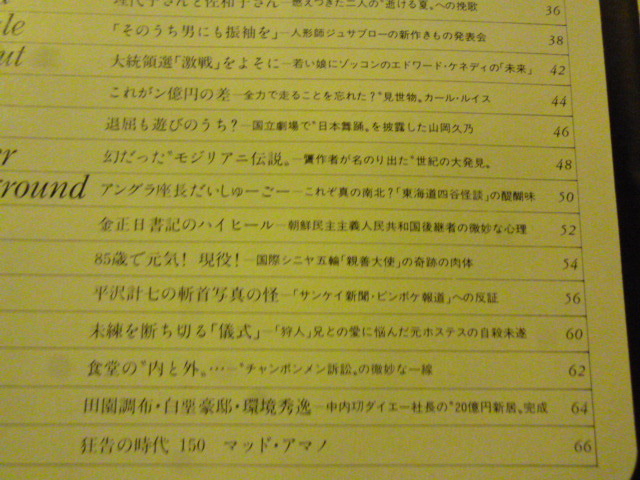 理代子さんと佐和子さん—燃えつきた二人の〝逝ける夏〟への挽歌 36
「そのうち男にも振袖を」—人形師ジュサブローの新作きもの発表会 38
大統領選「激戦」をよそに—若い娘にゾッコンのエドワード・ケネディの「未来」 42
これがン億円の差—全力で走ることを忘れた?〝見世物〟カール・ルイス 44
退屈も遊びのうち?—国立劇場で〝日本舞踊〟を披露した山岡久乃 46
幻だった〝モジリアニ伝説〟—贋作者が名のり出た〝世紀の大発見〟 48
round アングラ座長だいしゅーごー—これぞ真の南北?「東海道四谷怪談」の醍醐味 50
金正日書記のハイヒール—朝鮮民主主義人民共和国後継者の微妙な心理 52
85歳で元気! 現役!—国際シニヤ五輪「親善大使」の奇跡の肉体 54
平沢計七の斬首写真の怪—「サンケイ新聞・ピンボケ報道」への反証 56
未練を断ち切る「儀式」—「狩人」兄との愛に悩んだ元ホステスの自殺未遂 60
食堂の〝内と外〟…—〝チャンポンメン訴訟〟の微妙な一線 62
田園調布・白堊豪邸・環境秀逸—中内㓛ダイエー社長の〝20億円新居〟完成 64
狂告の時代 150 マッド・アマノ 66